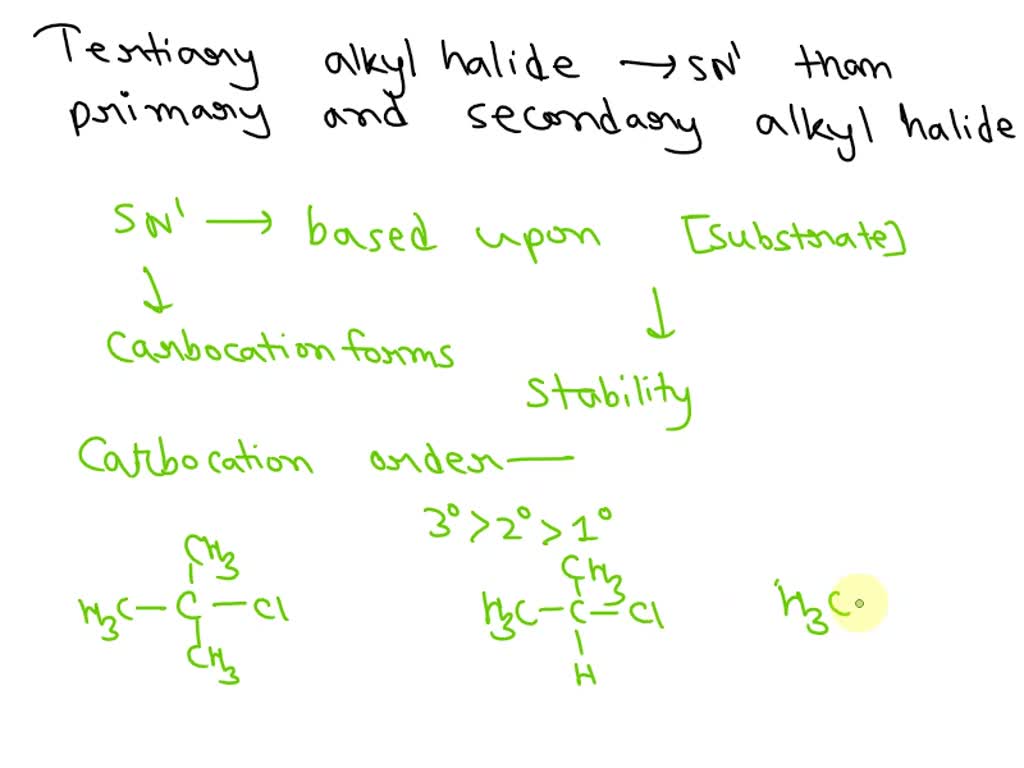 Tertiary alkyl halide → SN¹ than
primary and secondary alkyl halide
SN¹ → based upon [substrate]
↓ ↓
Carbocation forms
Stability
Carbocation order —
3° > 2° > 1°
CH₃ CH₃
H₃C — C — Cl H₃C — C = Cl H₃C
CH₃ H